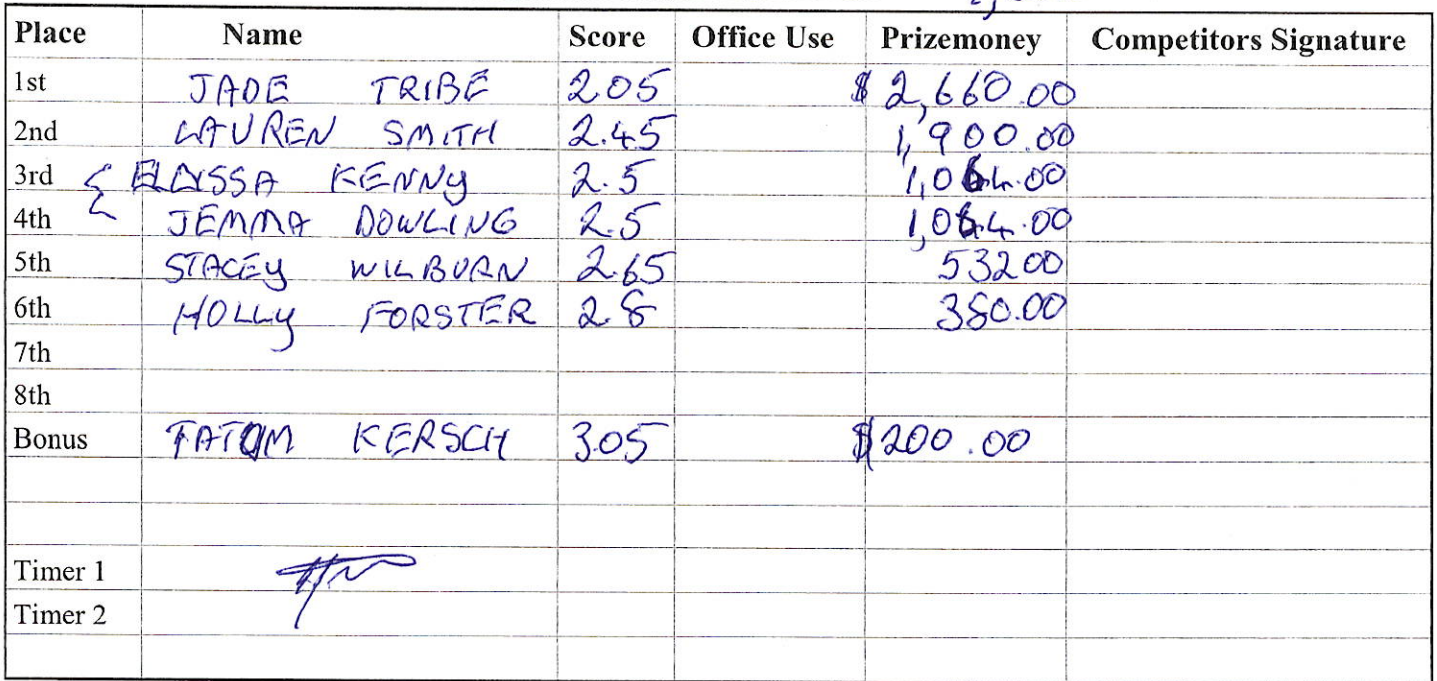 Place Name Score Office Use Prizemoney Competitors Signature
1st JADE TRIBE 2.05 $ 2,660.00
2nd LAUREN SMITH 2.45 1,900.00
3rd { ELYSSA KENNY 2.5 1,064.00
4th JEMMA DOWLING 2.5 1,064.00
5th STACEY WILBURN 2.65 532.00
6th HOLLY FORSTER 2.8 380.00
7th
8th
Bonus TATUM KERSCH 3.05 $200.00
Timer 1
Timer 2